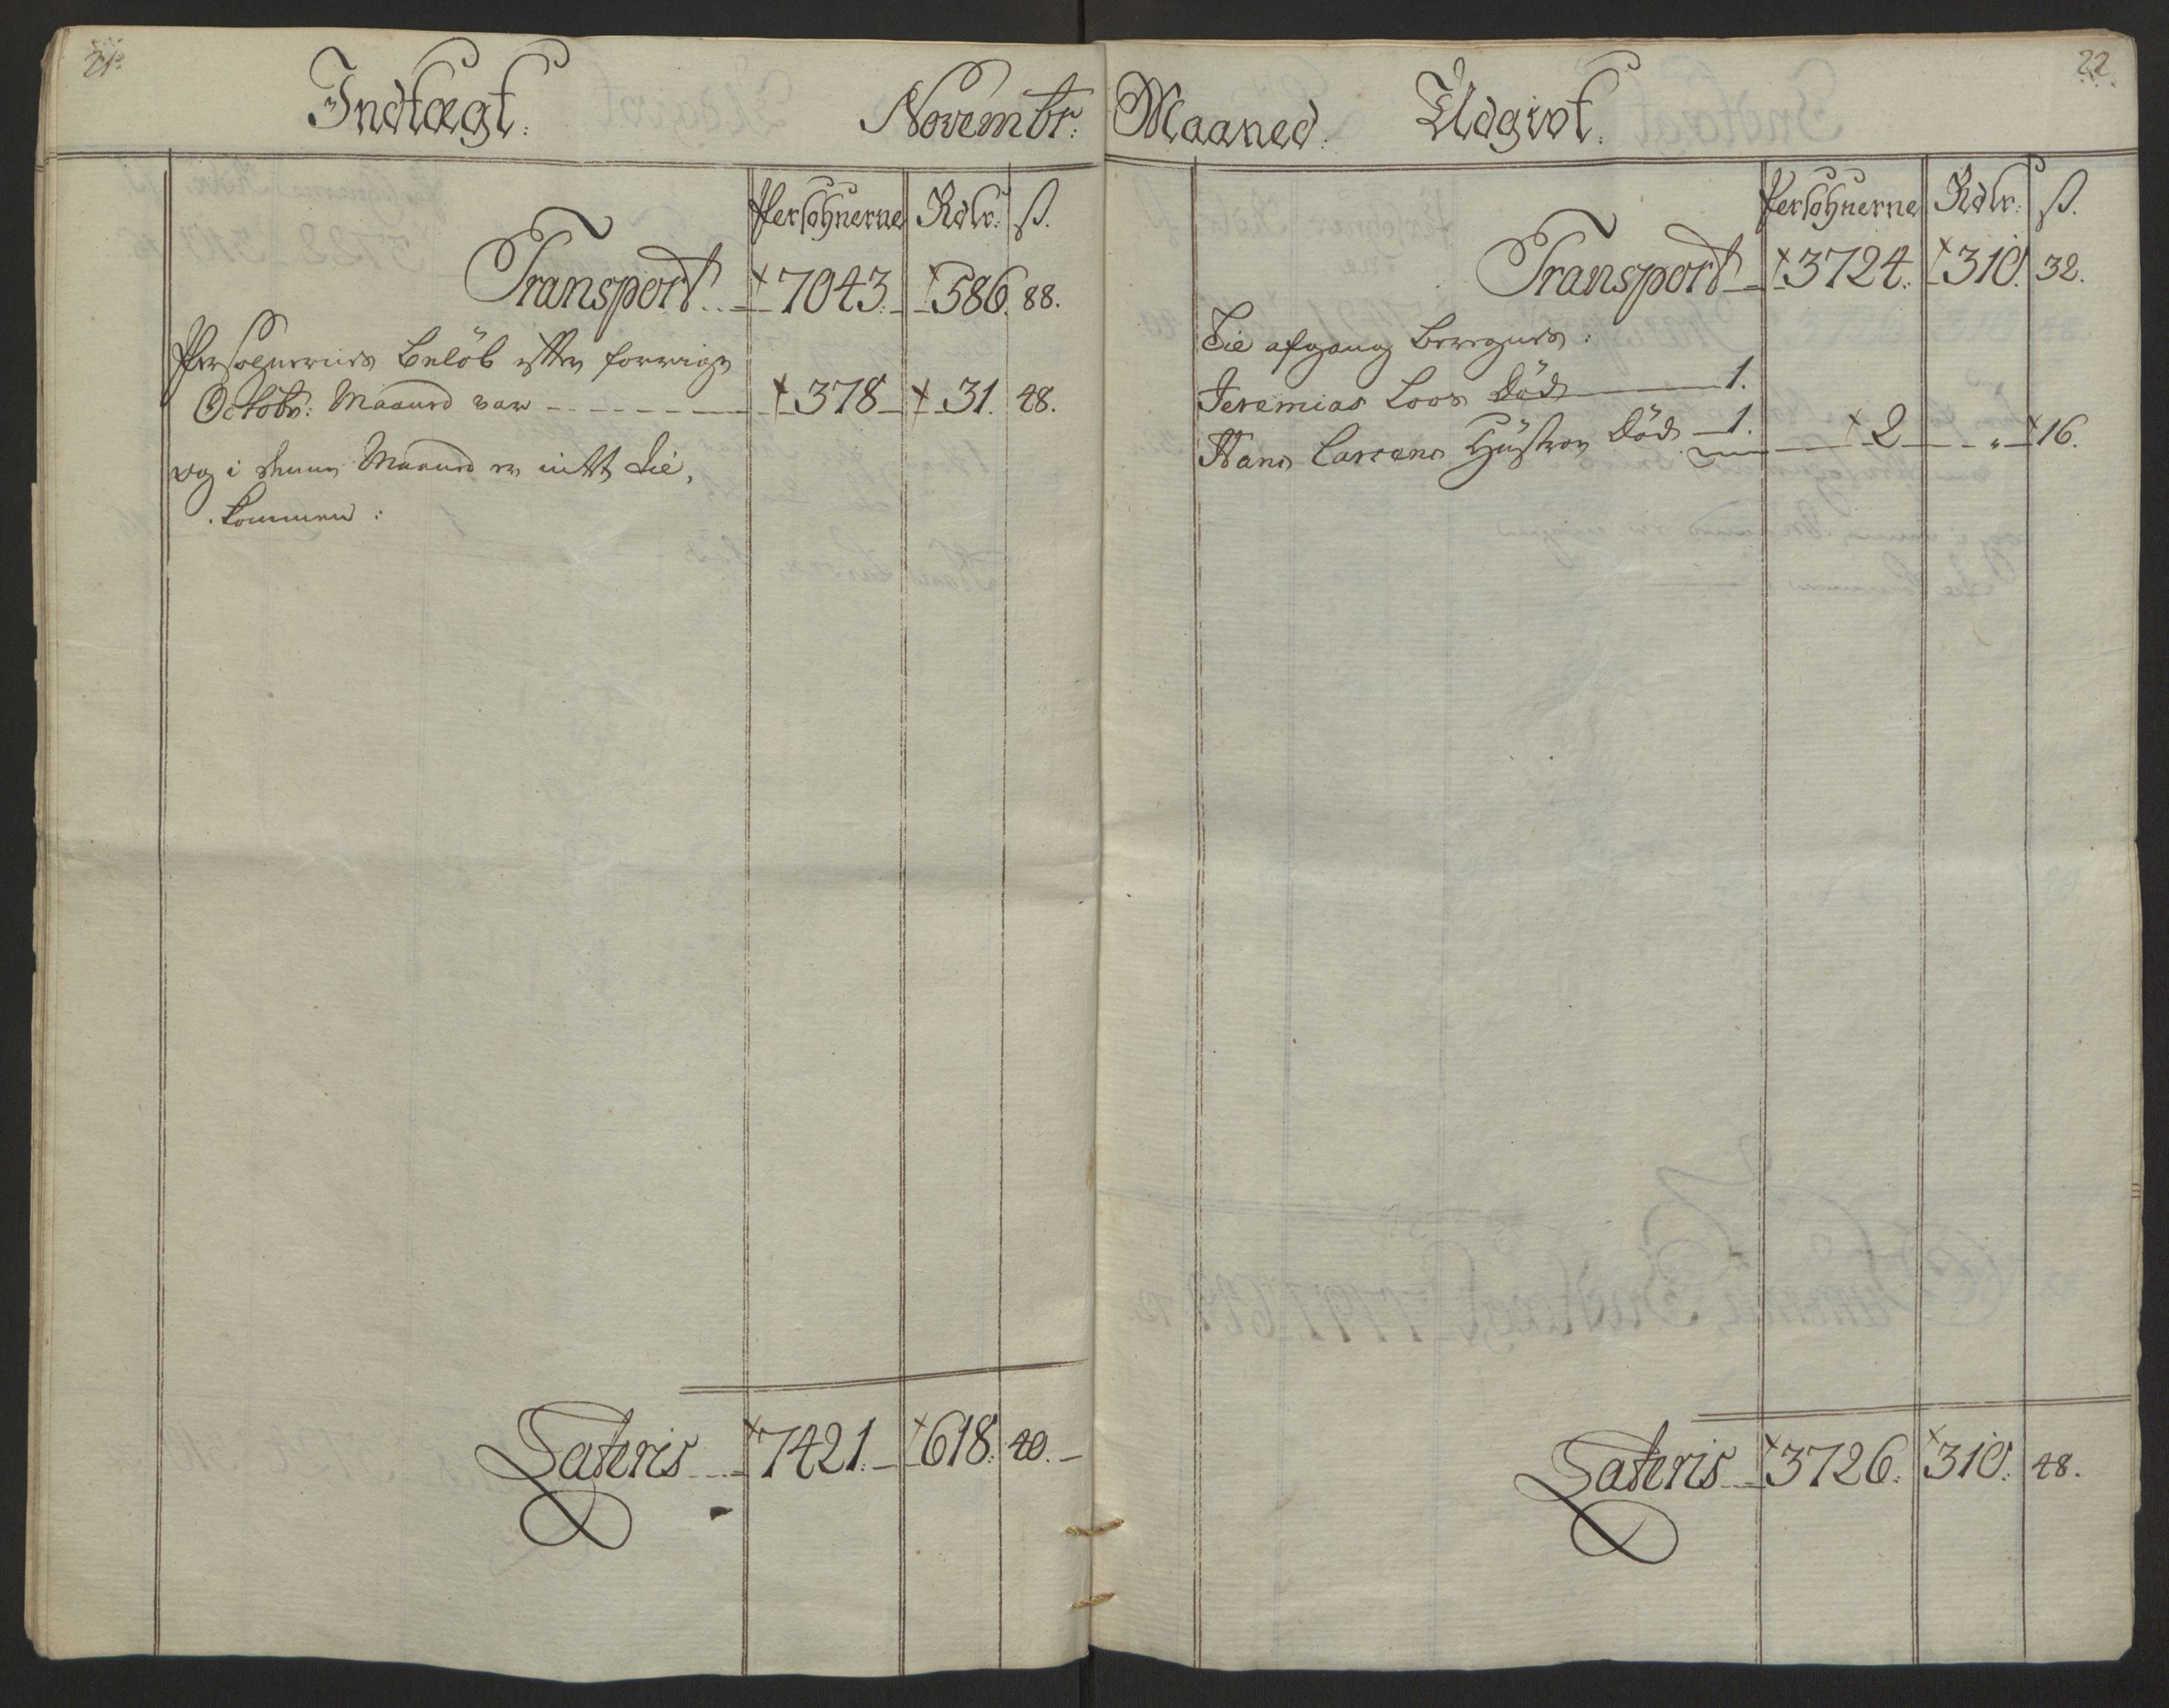 21.
Indtægt. Novembr:
Persohnerne Rdlr: ß.
Transport 7043. 586. 88.
Persohnernes Beløb efter forrige
Octobr: Maaned var 378 31. 48.
og i denne Maaned er intet Til,
kommen:
Lateris 7421. 618. 40.
22.
Maaned. Udgivt.
Persohnerne Rdlr: ß.
Transport 3724. 310. 32.
Til afgang beregnes:
Jeremias Loos Död 1.
Hans Larsens Hüstroe Död 1. 2 " 16.
Lateris 3726. 310. 48.